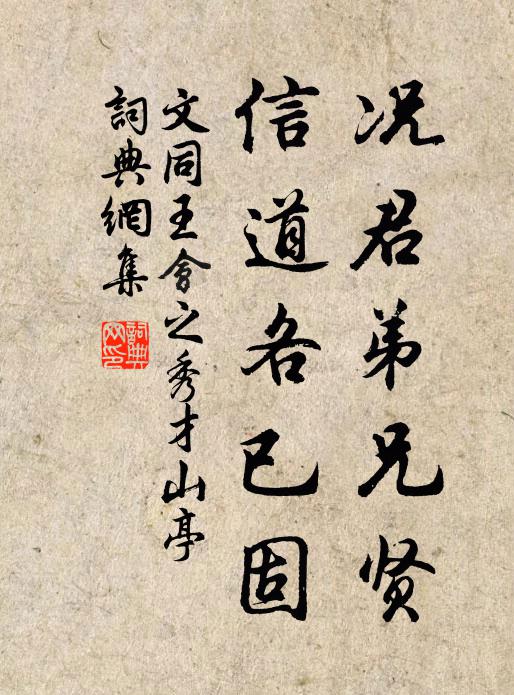 况君弟兄贤
信道各已固
文同王會之秀才山亭
詞典網集
詞典网印